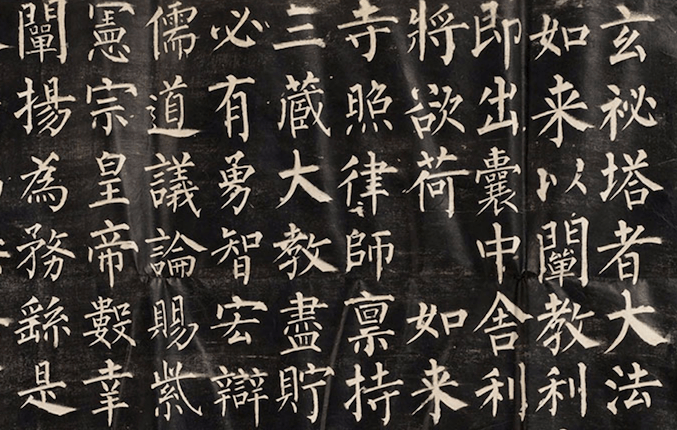 玄祕塔者大法
如来以闡教利
即出囊中舍利
將欲荷 如来
寺照律師 禀持
三藏大教盡貯
必有勇智宏辯
儒道議論賜紫
憲宗皇帝數幸
闡揚為務繇是